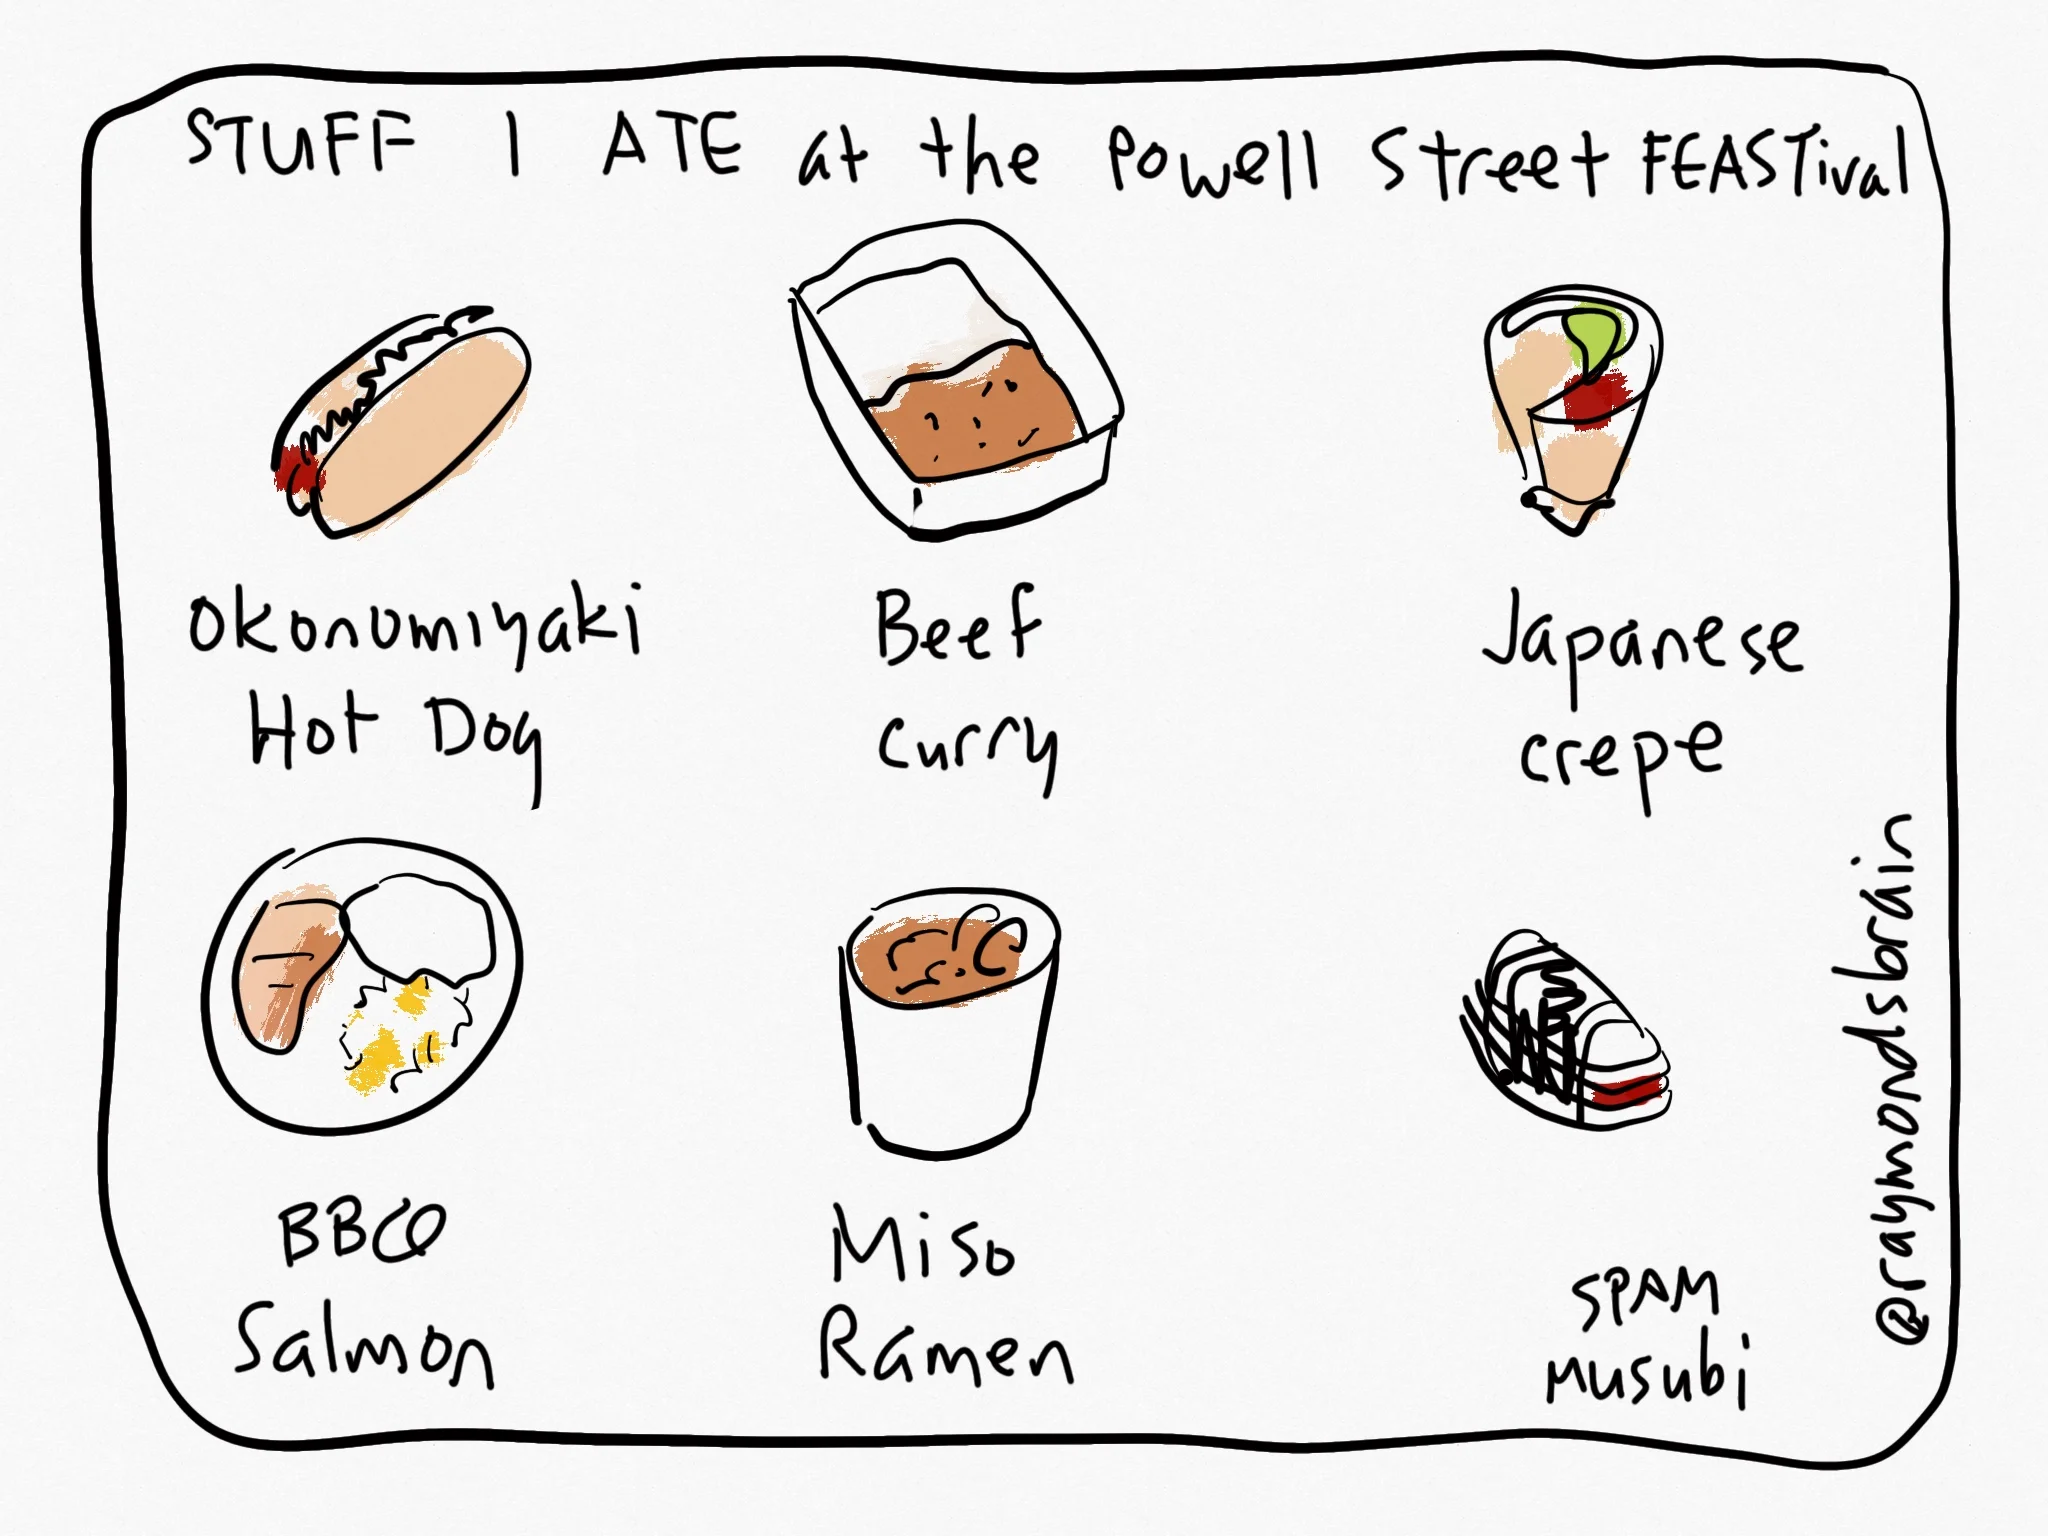 STUFF I ATE at the Powell Street FEASTival
Okonomiyaki
Hot Dog
Beef
curry
Japanese
crepe
BBQ
Salmon
Miso
Ramen
SPAM
musubi
@raymondsbrain